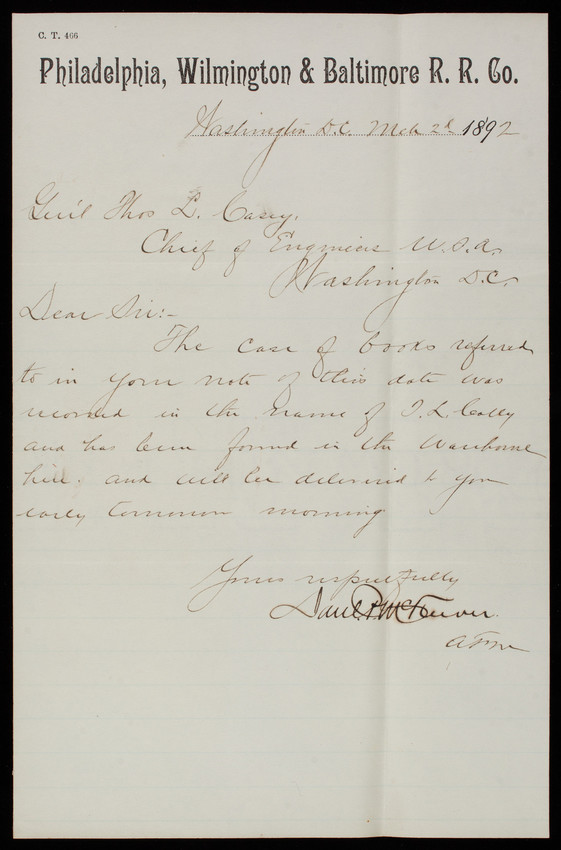 C. T. 466
Philadelphia, Wilmington & Baltimore R. R. Co.
Washington D.C. Mch 2d 1892
Gen'l Thos L. Casey,
Chief of Engineers U.S.A.
Washington D.C.
Dear Sir:-
The case of books referred
to in your note of this date was
received in the name of T. L. Colly
and has been found in the Warehouse
here. and will be delivered to you
early tomorrow morning
Yours respectfully